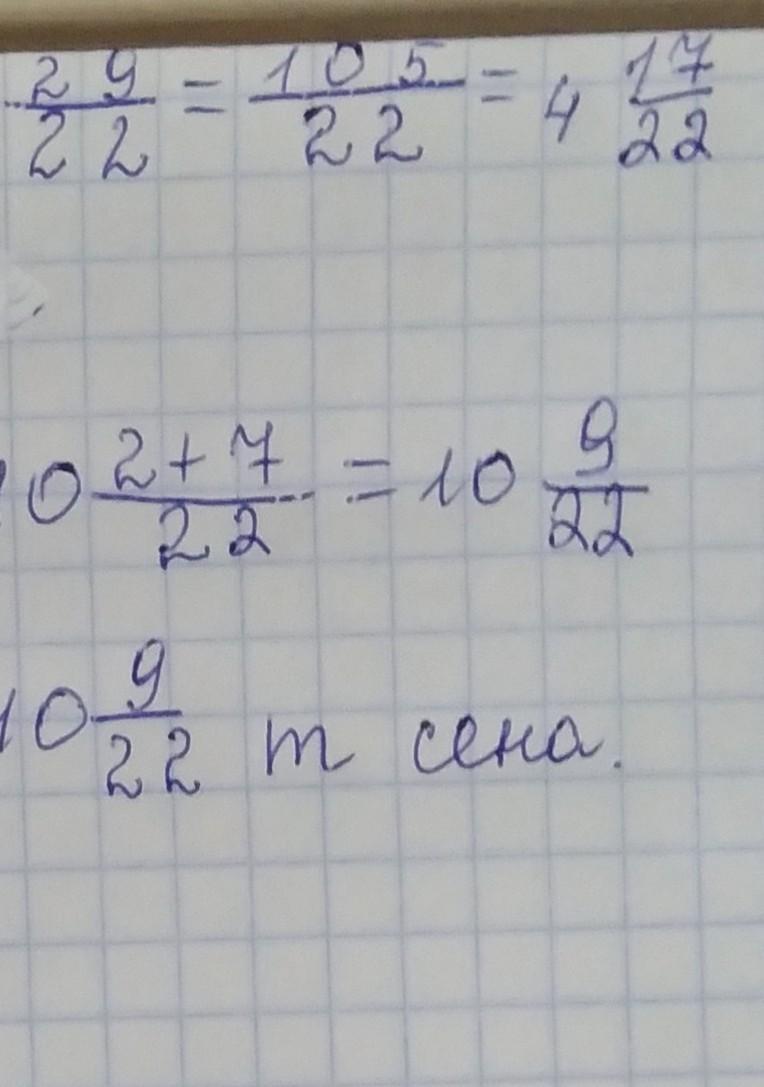 29/22 = 105/22 = 4 17/22
10 2+7/22 = 10 9/22
10 9/22 т сена.